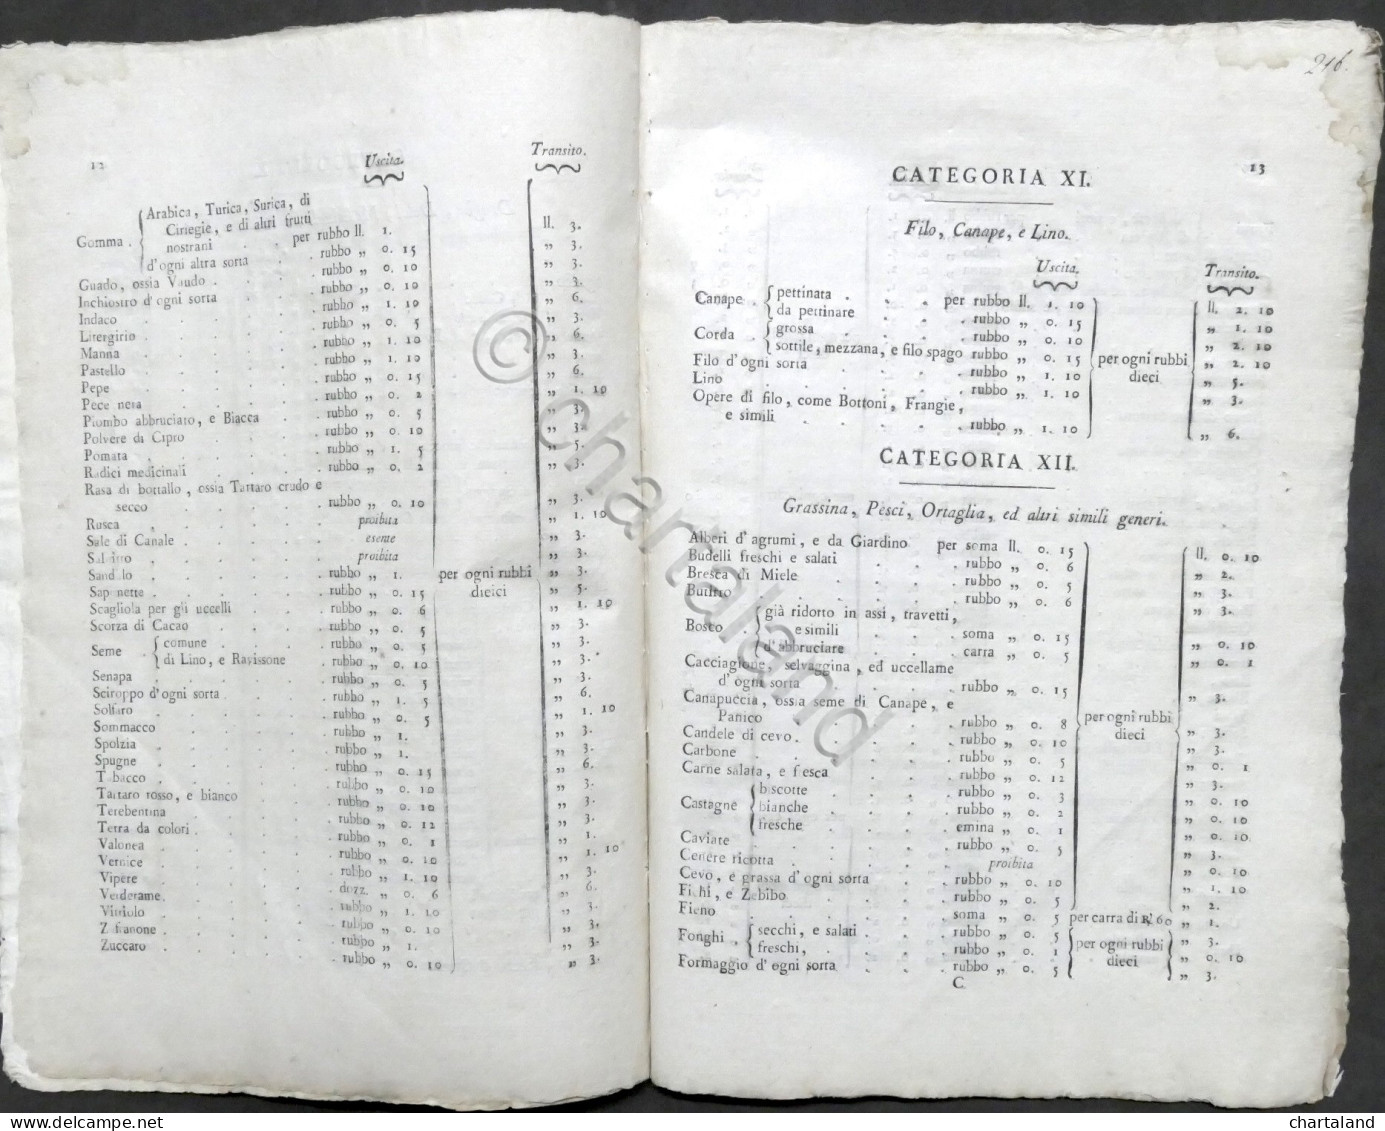 12
Uscita.
Transito.
Gomma . Arabica, Turica, Surica, di
Ciriegie, e di altri frutti
nostrani . . per rubbo ll. 1. ll. 3.
d'ogni altra sorta . . rubbo „ 0. 15 „ 3.
Guado, ossia Vaudo . . . . rubbo „ 0. 10 „ 3.
Inchiostro d'ogni sorta . . . rubbo „ 0. 10 „ 3.
Indaco . . . . . rubbo „ 1. 10 „ 6.
Litergirio . . . . . rubbo „ 0. 5 „ 3.
Manna . . . . . rubbo „ 1. 10 „ 6.
Pastello . . . . . rubbo „ 1. 10 „ 3.
Pepe . . . . . rubbo „ 0. 15 „ 6.
Pece nera . . . . . rubbo „ 0. 2 „ 1. 10
Piombo abbruciato, e Biacca . . rubbo „ 0. 5 „ 3.
Polvere di Cipro . . . . rubbo „ 0. 10 „ 3.
Pomata . . . . . rubbo „ 1. 5 „ 5.
Radici medicinali . . . . rubbo „ 0. 2 „ 3.
Rasa di bottallo, ossia Tartaro crudo e
secco . . . . . rubbo „ 0. 10 „ 3.
Rusca . . . . . proibita „ 1. 10
Sale di Canale . . . . . esente „ 3.
Salnitro . . . . . proibita „ 3.
Sandalo . . . . . rubbo „ 1. per ogni rubbi „ 3.
Saponette . . . . . rubbo „ 0. 15 dieici „ 5.
Scagliola per gli uccelli . . . rubbo „ 0. 6 „ 1. 10
Scorza di Cacao . . . . rubbo „ 0. 5 „ 3.
Seme . comune . . . . rubbo „ 0. 5 „ 3.
di Lino, e Ravissone . rubbo „ 0. 10 „ 3.
Senapa . . . . . rubbo „ 0. 5 „ 3.
Sciroppo d'ogni sorta . . . rubbo „ 1. 5 „ 6.
Solfaro . . . . . rubbo „ 0. 5 „ 1. 10
Sommacco . . . . . rubbo „ 1. „ 3.
Spolzia . . . . . rubbo „ 1. „ 3.
Spugne . . . . . rubbo „ 0. 15 „ 6.
Tabacco . . . . . rubbo „ 0. 10 „ 3.
Tartaro rosso, e bianco . . . rubbo „ 0. 10 „ 3.
Terebentina . . . . . rubbo „ 0. 12 „ 3.
Terra da colori . . . . rubbo „ 0. 1 „ 1.
Valonea . . . . . rubbo „ 0. 10 „ 1. 10
Vernice . . . . . rubbo „ 1. 10 „ 3.
Vipere . . . . . dozz. „ 0. 6 „ 6.
Verderame . . . . . rubbo „ 1. 10 „ 3.
Vitriolo . . . . . rubbo „ 0. 10 „ 3.
Zafranone . . . . . rubbo „ 1. „ 3.
Zuccaro . . . . . rubbo „ 0. 10 „ 3.
216.
13
CATEGORIA XI.
Filo, Canape, e Lino.
Uscita.
Transito.
Canape . pettinata . . . per rubbo ll. 1. 10 ll. 2. 10
da pettinare . . . rubbo „ 0. 15 „ 1. 10
Corda . grossa . . . rubbo „ 0. 10 „ 2. 10
sottile, mezzana, e filo spago rubbo „ 0. 15 per ogni rubbi „ 2. 10
Filo d'ogni sorta . . . . rubbo „ 1. 10 dieci „ 5.
Lino . . . . . rubbo „ 1. 10 „ 3.
Opere di filo, come Bottoni, Frangie,
e simili . . . . . rubbo „ 1. 10 „ 6.
CATEGORIA XII.
Grassina, Pesci, Ortaglia, ed altri simili generi.
Alberi d'agrumi, e da Giardino per soma ll. 0. 15 ll. 0. 10
Budelli freschi e salati . . rubbo „ 0. 6 „ 2.
Bresca di Miele . . . . rubbo „ 0. 5 „ 3.
Butirro . . . . . rubbo „ 0. 6 „ 3.
Bosco . già ridotto in assi, travetti,
e simili . . . soma „ 0. 15 „ 0. 10
d'abbruciare . . . carra „ 0. 5 „ 0. 1
Cacciagione, selvaggina, ed uccellame
d'ogni sorta . . . . rubbo „ 0. 15 „ 3.
Canapuccia, ossia seme di Canape, e
Panico . . . . rubbo „ 0. 8 per ogni rubbi „ 3.
Candele di cevo . . . . rubbo „ 0. 10 dieci „ 3.
Carbone . . . . . rubbo „ 0. 5 „ 0. 1
Carne salata, e fresca . . . rubbo „ 0. 12 „ 3.
Castagne biscotte . . . rubbo „ 0. 3 „ 0. 10
bianche . . . rubbo „ 0. 2 „ 0. 10
fresche . . . emina „ 0. 1 „ 0. 10
Caviale . . . . . rubbo „ 0. 5 „ 3.
Cenere ricotta . . . . proibita „ 0. 10
Cevo, e grassa d'ogni sorta . . rubbo „ 0. 10 „ 1. 10
Fichi, e Zebibo . . . . rubbo „ 0. 5 „ 2.
Fieno . . . . . soma „ 0. 5 per carra di R.' 60 „ 1.
Fonghi . secchi, e salati . . . rubbo „ 0. 5 „ 3.
freschi, . . . rubbo „ 0. 1 per ogni rubbi „ 0. 10
Formaggio d'ogni sorta . . . rubbo „ 0. 5 dieci „ 3.
C
© chartaland
chartaland